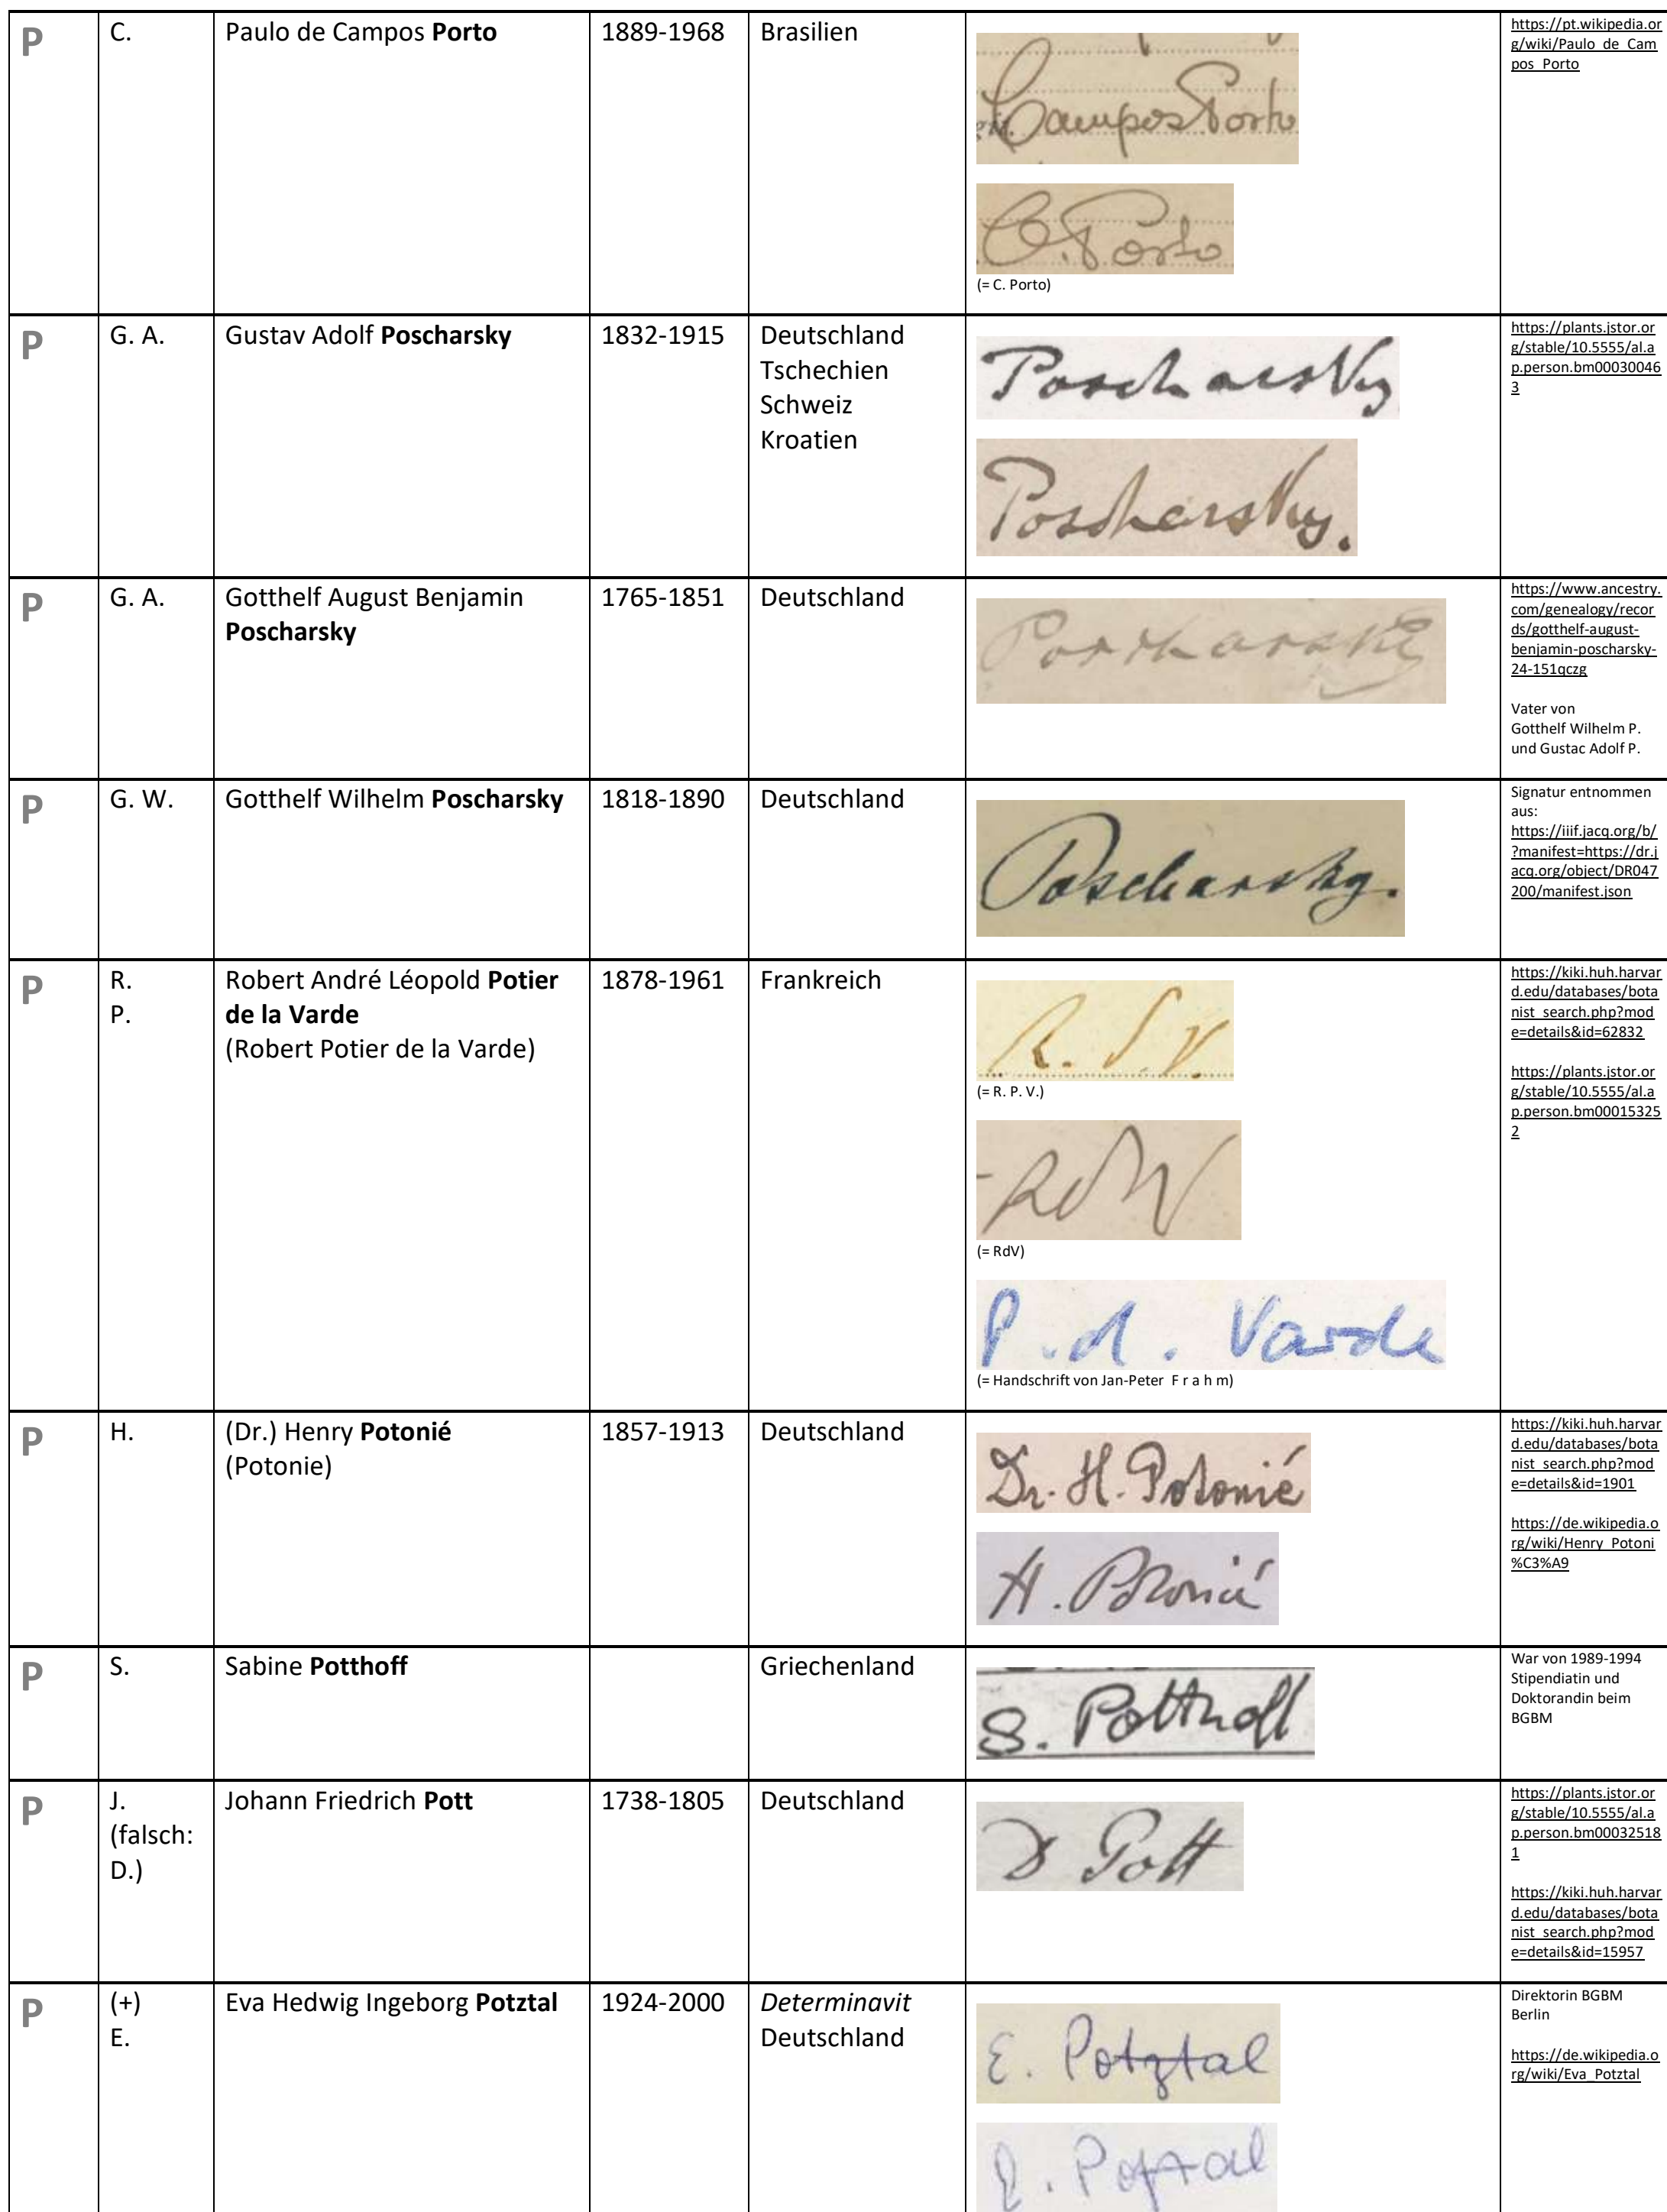 P
C.
Paulo de Campos Porto
1889-1968
Brasilien
Campos Porto
C. Porto
(= C. Porto)
https://pt.wikipedia.or
g/wiki/Paulo_de_Cam
pos_Porto
P
G. A.
Gustav Adolf Poscharsky
1832-1915
Deutschland
Tschechien
Schweiz
Kroatien
Poscharsky
Poscharsky.
https://plants.jstor.or
g/stable/10.5555/al.a
p.person.bm00030046
3
P
G. A.
Gotthelf August Benjamin
Poscharsky
1765-1851
Deutschland
Poscharsky
https://www.ancestry.
com/genealogy/recor
ds/gotthelf-august-
benjamin-poscharsky-
24-151qczg
Vater von
Gotthelf Wilhelm P.
und Gustac Adolf P.
P
G. W.
Gotthelf Wilhelm Poscharsky
1818-1890
Deutschland
Poscharsky.
Signatur entnommen
aus:
https://iiif.jacq.org/b/
?manifest=https://dr.j
acq.org/object/DR047
200/manifest.json
P
R.
P.
Robert André Léopold Potier
de la Varde
(Robert Potier de la Varde)
1878-1961
Frankreich
R. P. V.
(= R. P. V.)
RdV
(= RdV)
P. d. Varde
(= Handschrift von Jan-Peter F r a h m)
https://kiki.huh.harvar
d.edu/databases/bota
nist_search.php?mod
e=details&id=62832
https://plants.jstor.or
g/stable/10.5555/al.a
p.person.bm00015325
2
P
H.
(Dr.) Henry Potonié
(Potonie)
1857-1913
Deutschland
Dr. H. Potonié
H. Potonié
https://kiki.huh.harvar
d.edu/databases/bota
nist_search.php?mod
e=details&id=1901
https://de.wikipedia.o
rg/wiki/Henry_Potoni
%C3%A9
P
S.
Sabine Potthoff
Griechenland
S. Potthoff
War von 1989-1994
Stipendiatin und
Doktorandin beim
BGBM
P
J.
(falsch:
D.)
Johann Friedrich Pott
1738-1805
Deutschland
D Pott
https://plants.jstor.or
g/stable/10.5555/al.a
p.person.bm00032518
1
https://kiki.huh.harvar
d.edu/databases/bota
nist_search.php?mod
e=details&id=15957
P
(+)
E.
Eva Hedwig Ingeborg Potztal
1924-2000
Determinavit
Deutschland
E. Potztal
E. Potztal
Direktorin BGBM
Berlin
https://de.wikipedia.o
rg/wiki/Eva_Potztal